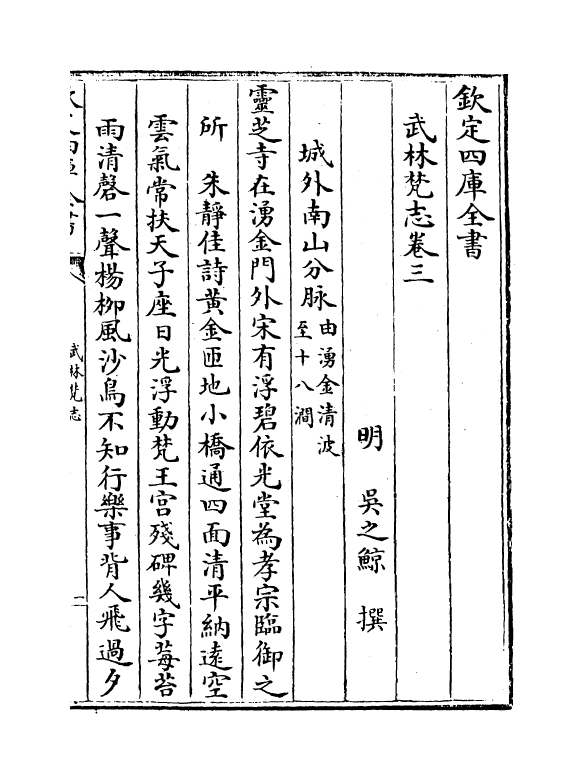 欽定四庫全書
武林梵志卷三
明 吳之鯨 撰
城外南山分脉由湧金清波
至十八澗
靈芝寺在湧金門外宋有浮碧依光堂為孝宗臨御之
所 朱靜佳詩黄金匝地小橋通四面清平納遠空
雲氣常扶天子座日光浮動梵王宫殘碑幾字莓苔
雨清磬一聲楊柳風沙鳥不知行樂事背人飛過夕
武林梵志
二